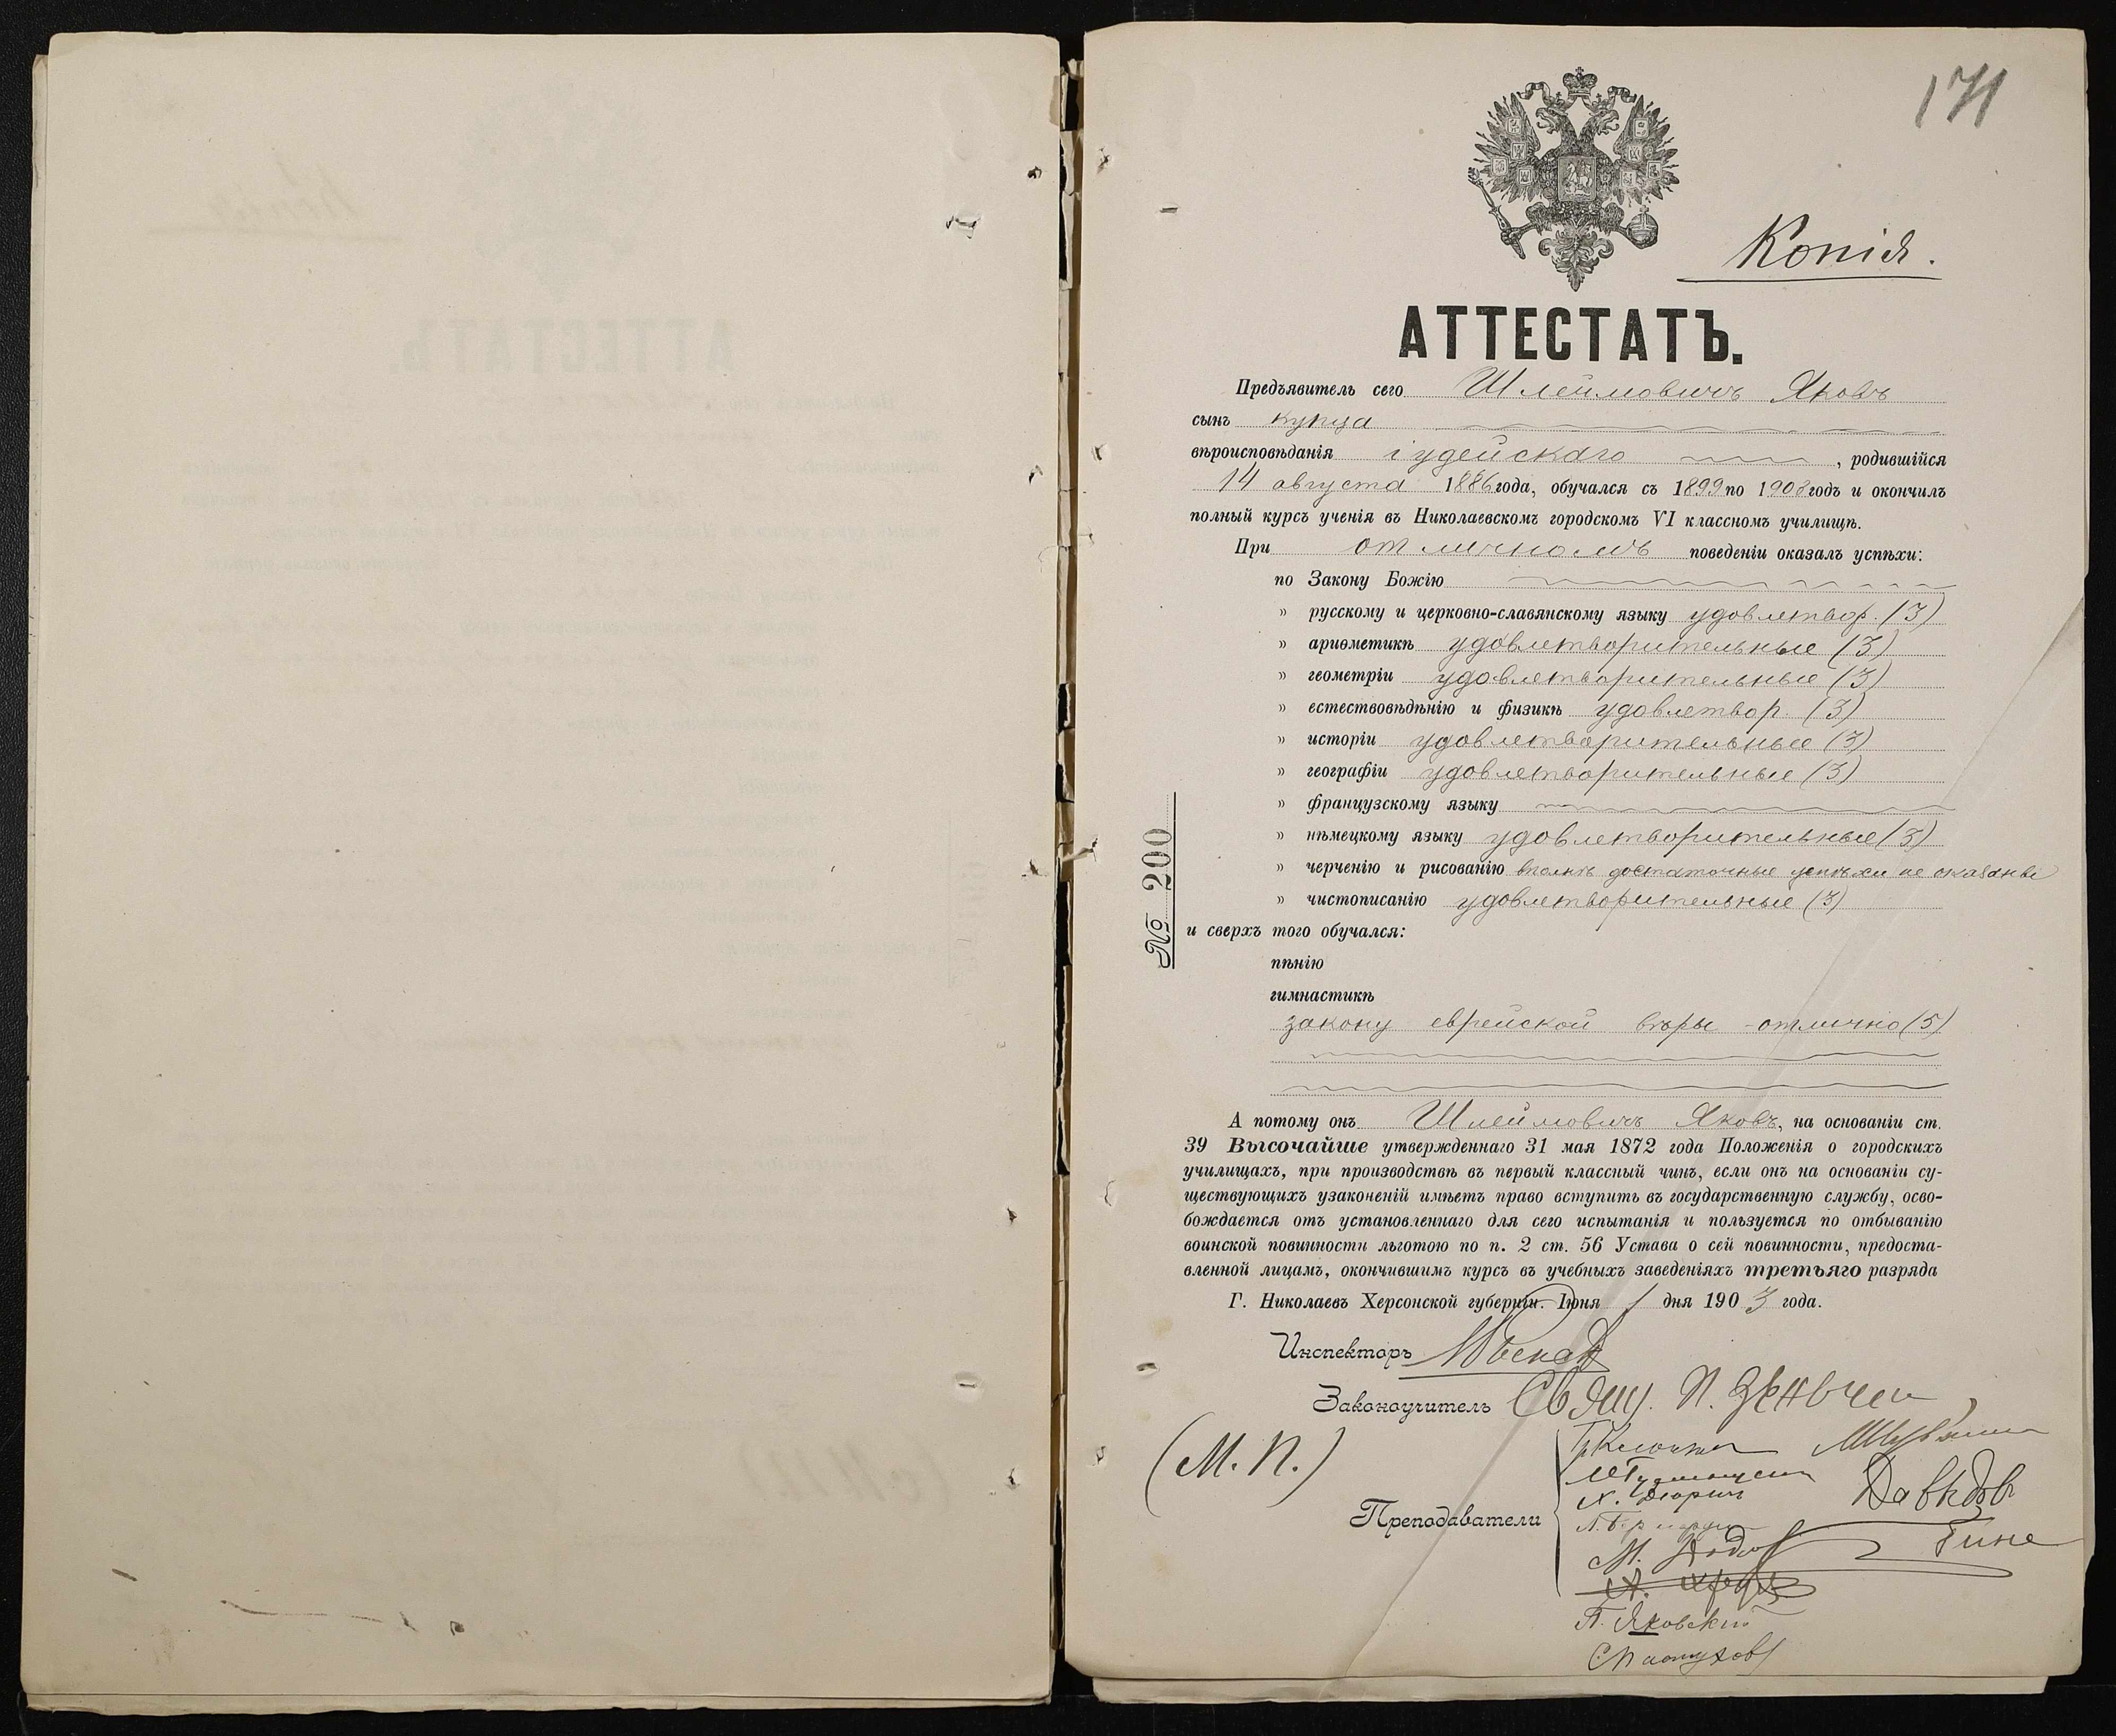 171
Копія.
АТТЕСТАТЪ.
Предъявитель сего Шлеймовичъ Яковъ
сынъ купца
вѣроисповѣданія іудейскаго , родившійся
14 августа 1886 года, обучался съ 1899 по 1903 годъ и окончилъ
полный курсъ ученія въ Николаевскомъ городскомъ VI классномъ училищѣ.
При отличномъ поведеніи оказалъ успѣхи:
по Закону Божію
» русскому и церковно-славянскому языку удовлетвор. (3)
» ариѳметикѣ удовлетворительные (3)
» геометріи удовлетворительные (3)
» естествовѣдѣнію и физикѣ удовлетвор. (3)
» исторіи удовлетворительные (3)
» географіи удовлетворительные (3)
» французскому языку
» нѣмецкому языку удовлетворительные (3)
» черченію и рисованію вполнѣ достаточные успѣхи не оказаны
» чистописанію удовлетворительные (3)
№ 200
и сверхъ того обучался:
пѣнію
гимнастикѣ
закону еврейской вѣры - отлично (5)
А потому онъ Шлеймовичъ Яковъ, на основаніи ст.
39 Высочайше утвержденнаго 31 мая 1872 года Положенія о городскихъ
училищахъ, при производствѣ въ первый классный чинъ, если онъ на основаніи су-
ществующихъ узаконеній имѣетъ право вступить въ государственную службу, осво-
бождается отъ установленнаго для сего испытанія и пользуется по отбыванію
воинской повинности льготою по п. 2 ст. 56 Устава о сей повинности, предоста-
вленной лицамъ, окончившимъ курсъ въ учебныхъ заведеніяхъ третьяго разряда
Г. Николаевъ Херсонской губерніи. Іюня 1 дня 1903 года.
Инспекторъ
Законоучитель Свящ. П.
(М. П.)
Преподаватели
Давидов
Гине
М.
П. Яковскій
С. Пастухов